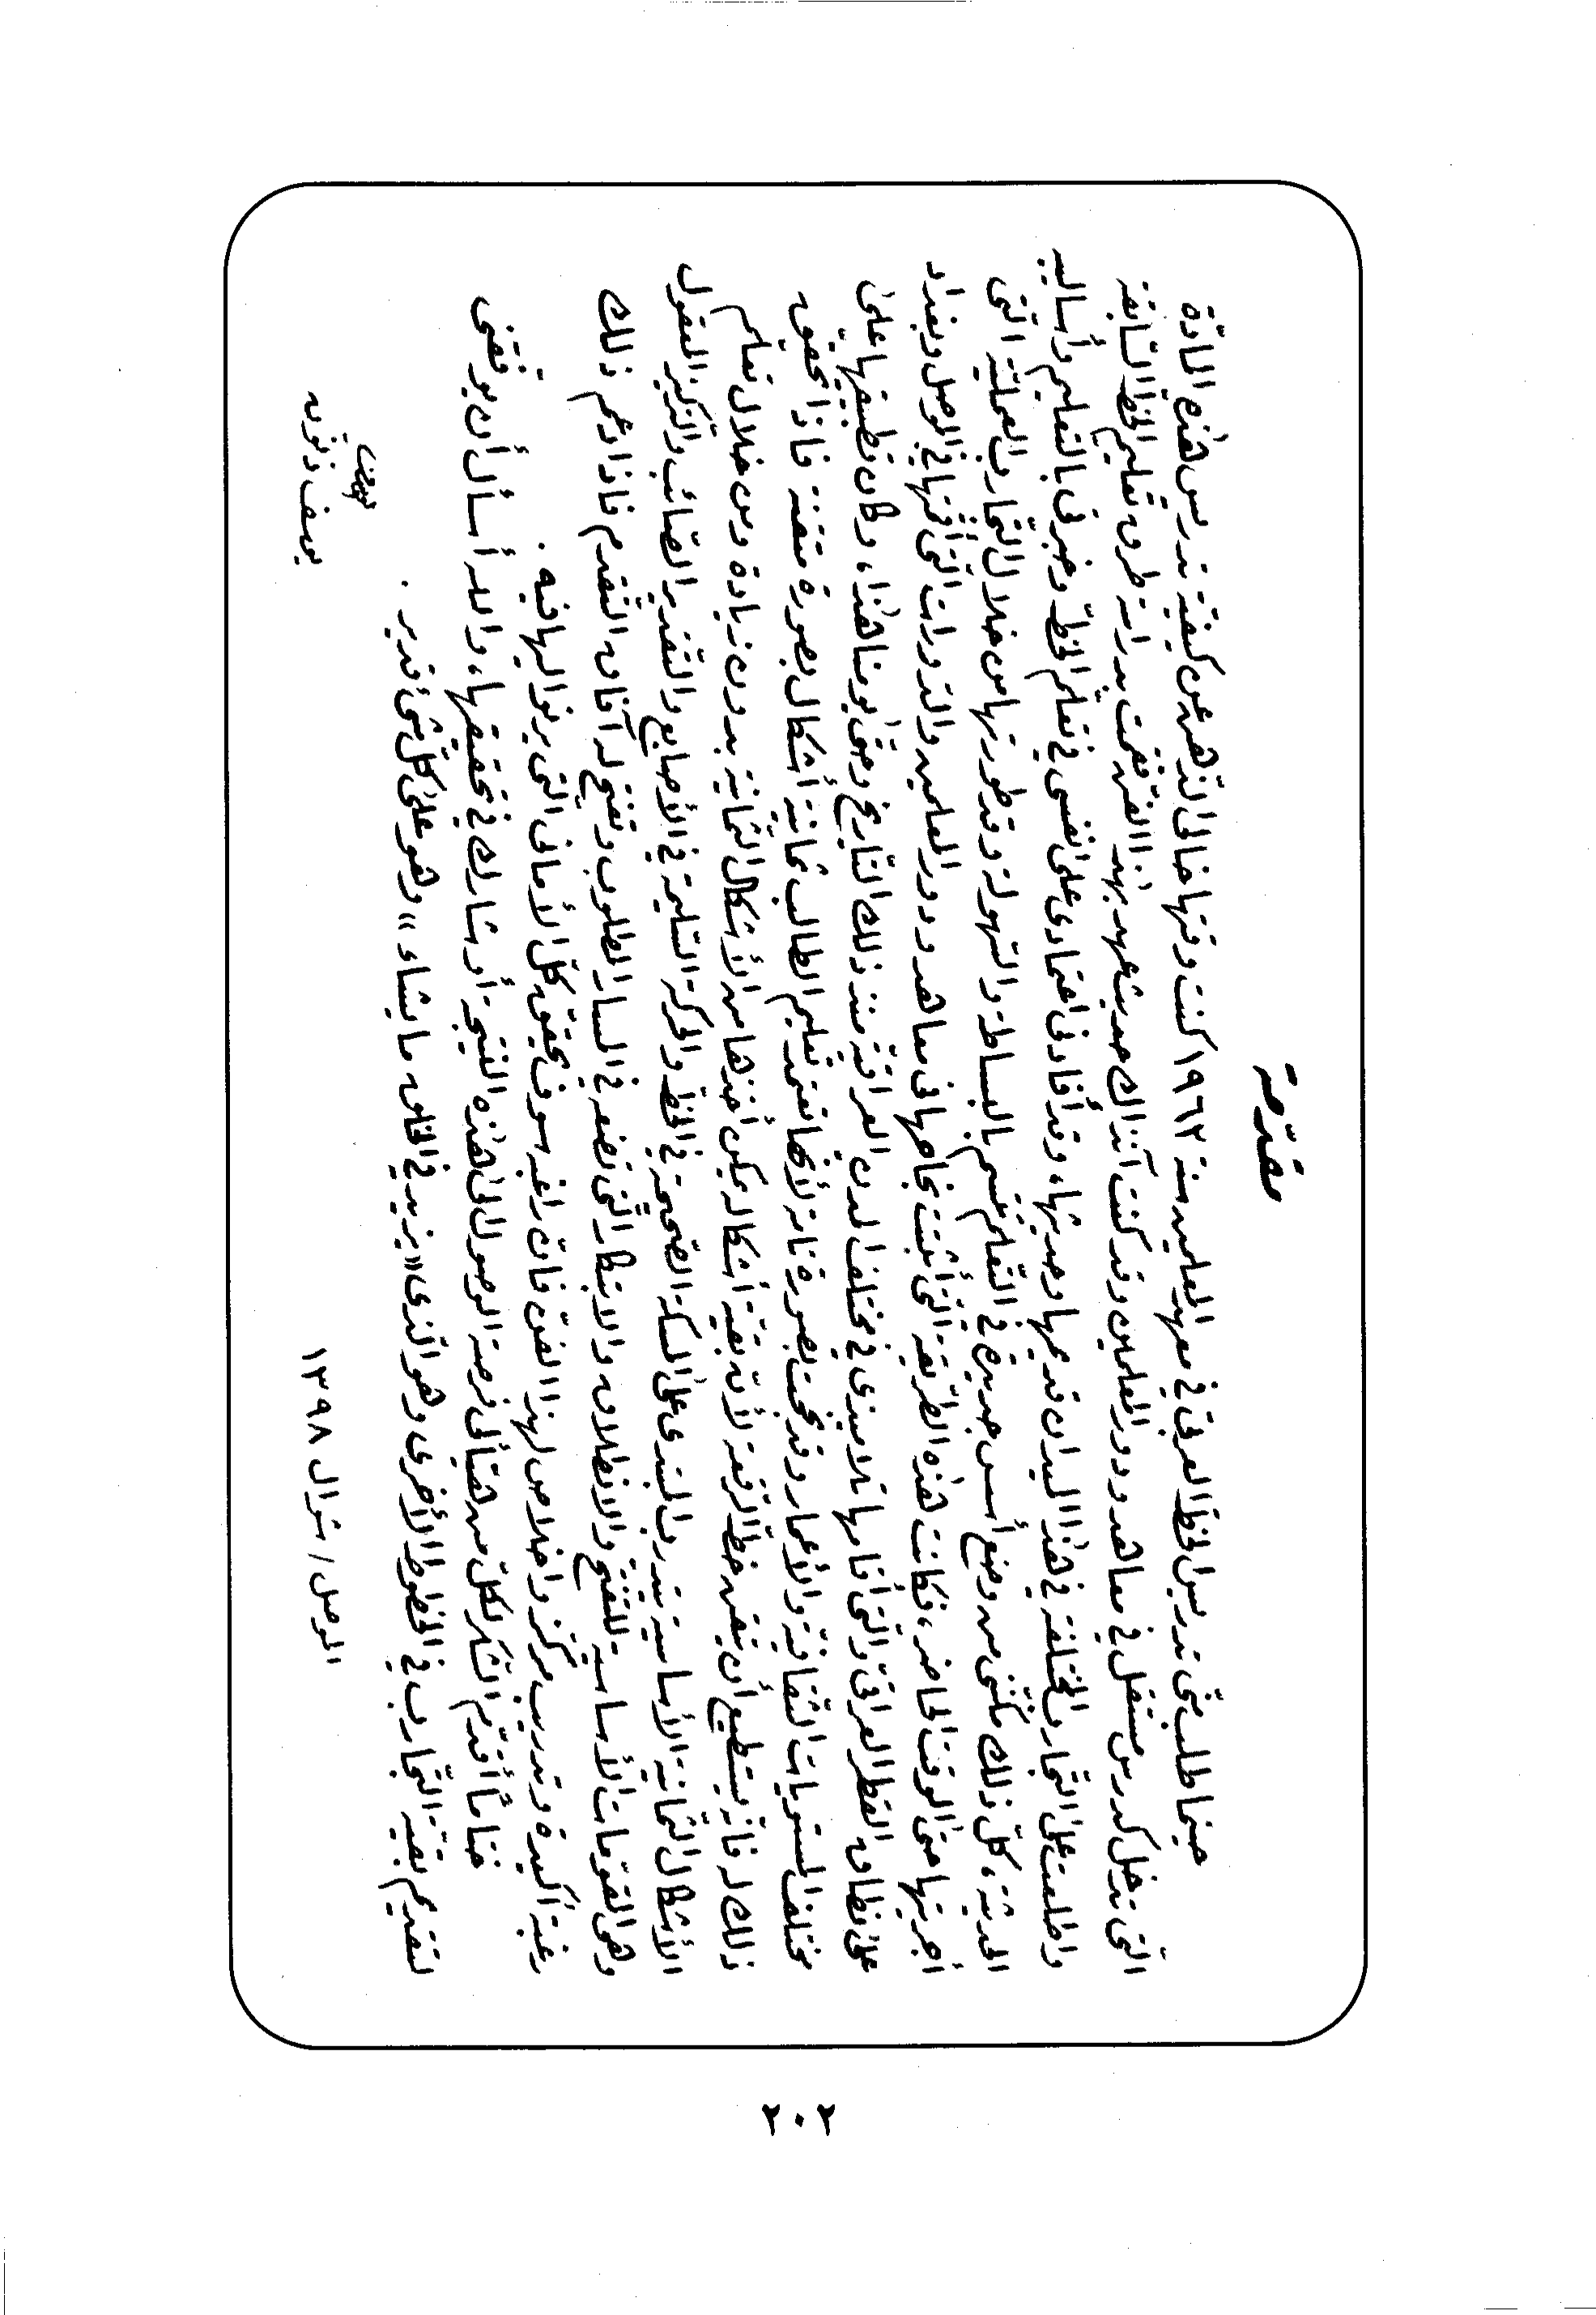 مقدّمة
حينما طلب منّى تدريس الخطّ العربى في معهد المعلمين سنة ١٩٦٣ كنت وقتها خالى الذّهن عن كيفيّة تدريس هٰذه المادّة
الّتى تدخل كدرس مستقل في معاهد ودور المعلمين وقد كنت آنذاك حديث عهد بهٰذا الفنّ فقمت بدراسة طرق تعليم الخطّ السّابقة
واطلعت على التّجارب المختلفة في هٰذا الميدان قديمها وحديثها، وقد أفادنى اعتمادى على نفسى في تعلّم الخطّ وخبرتى بالتّعليم وأساليبه
الحديثة، كلّ ذلك مكّننى من وضع أسس جديدة في التّعلّم تتّسم بالبساطة والسّهولة وقد طورتها من خلال التّجارب العمليّة الّتى
أجريتها حتى الوقت الحاضر، فكانت هٰذه الطّريقة الّتى أثبتت نجاحها فى معاهد ودور المعلمين والدّورات الّتى أقمتها في الموصل وبغداد
على نطاق القطر العراقى والّتى أقامها تلاميذى في مختلف المدن العراقيّة منذ ذلك التّاريخ وحتىٰ يومنا هٰذا، وكان تطبيقها علىٰ
مختلف المستويات الثّقافيّة والأعمار وقد نجحت بصورة تامة لأنّها تعتمد تعليم الطالب ثمانية أشكال بصورة متقنة فاذا تحقيق
ذلك له فانّه يستطيع أن يتقن خطّ الرّقعة لأنّ بقيّة أشكاله يمكن أخذها من الأشكال الثّمانية بدون زيادة ومن خلال تعلم
الأشكال الثّمانية الأساسية يتدرب المبتدى على المسكة الصّحيحة في الخطّ والحركة السّليمة في الأصابع والتّقدير الصّائب والتّركيز المعقول
وهى المقوّمات الأساسية للتّفتّح والانطلاق والابتكار الّتى تضعه في المسار المطلوب وتفتح له آفاق التّقدم فاذا دعم ذلك
رغبة أكيدة وتدريب مركّز واخلاص لهذا الفنّ فانّ راغبه سوف يحقّق كلّ الأمانى الّتى يرنو اليها فيه .
ختاماً أقدّم الشّكر لكلّ من هيّأ لى فرصة الوصول الى هٰذه النّتيجة أو شارك في تحقيقها، والله أسأل أن يوفقنى
لتقديم بقيّة التّجارب في الخطوط الأخرى وهو الّذى «يزيد في الخلق ما يشاء» وهو علىٰ كلّ شىء قدير .
يوسف ذنون
الموصل / شوال ١٣٩٨
٢٠٢